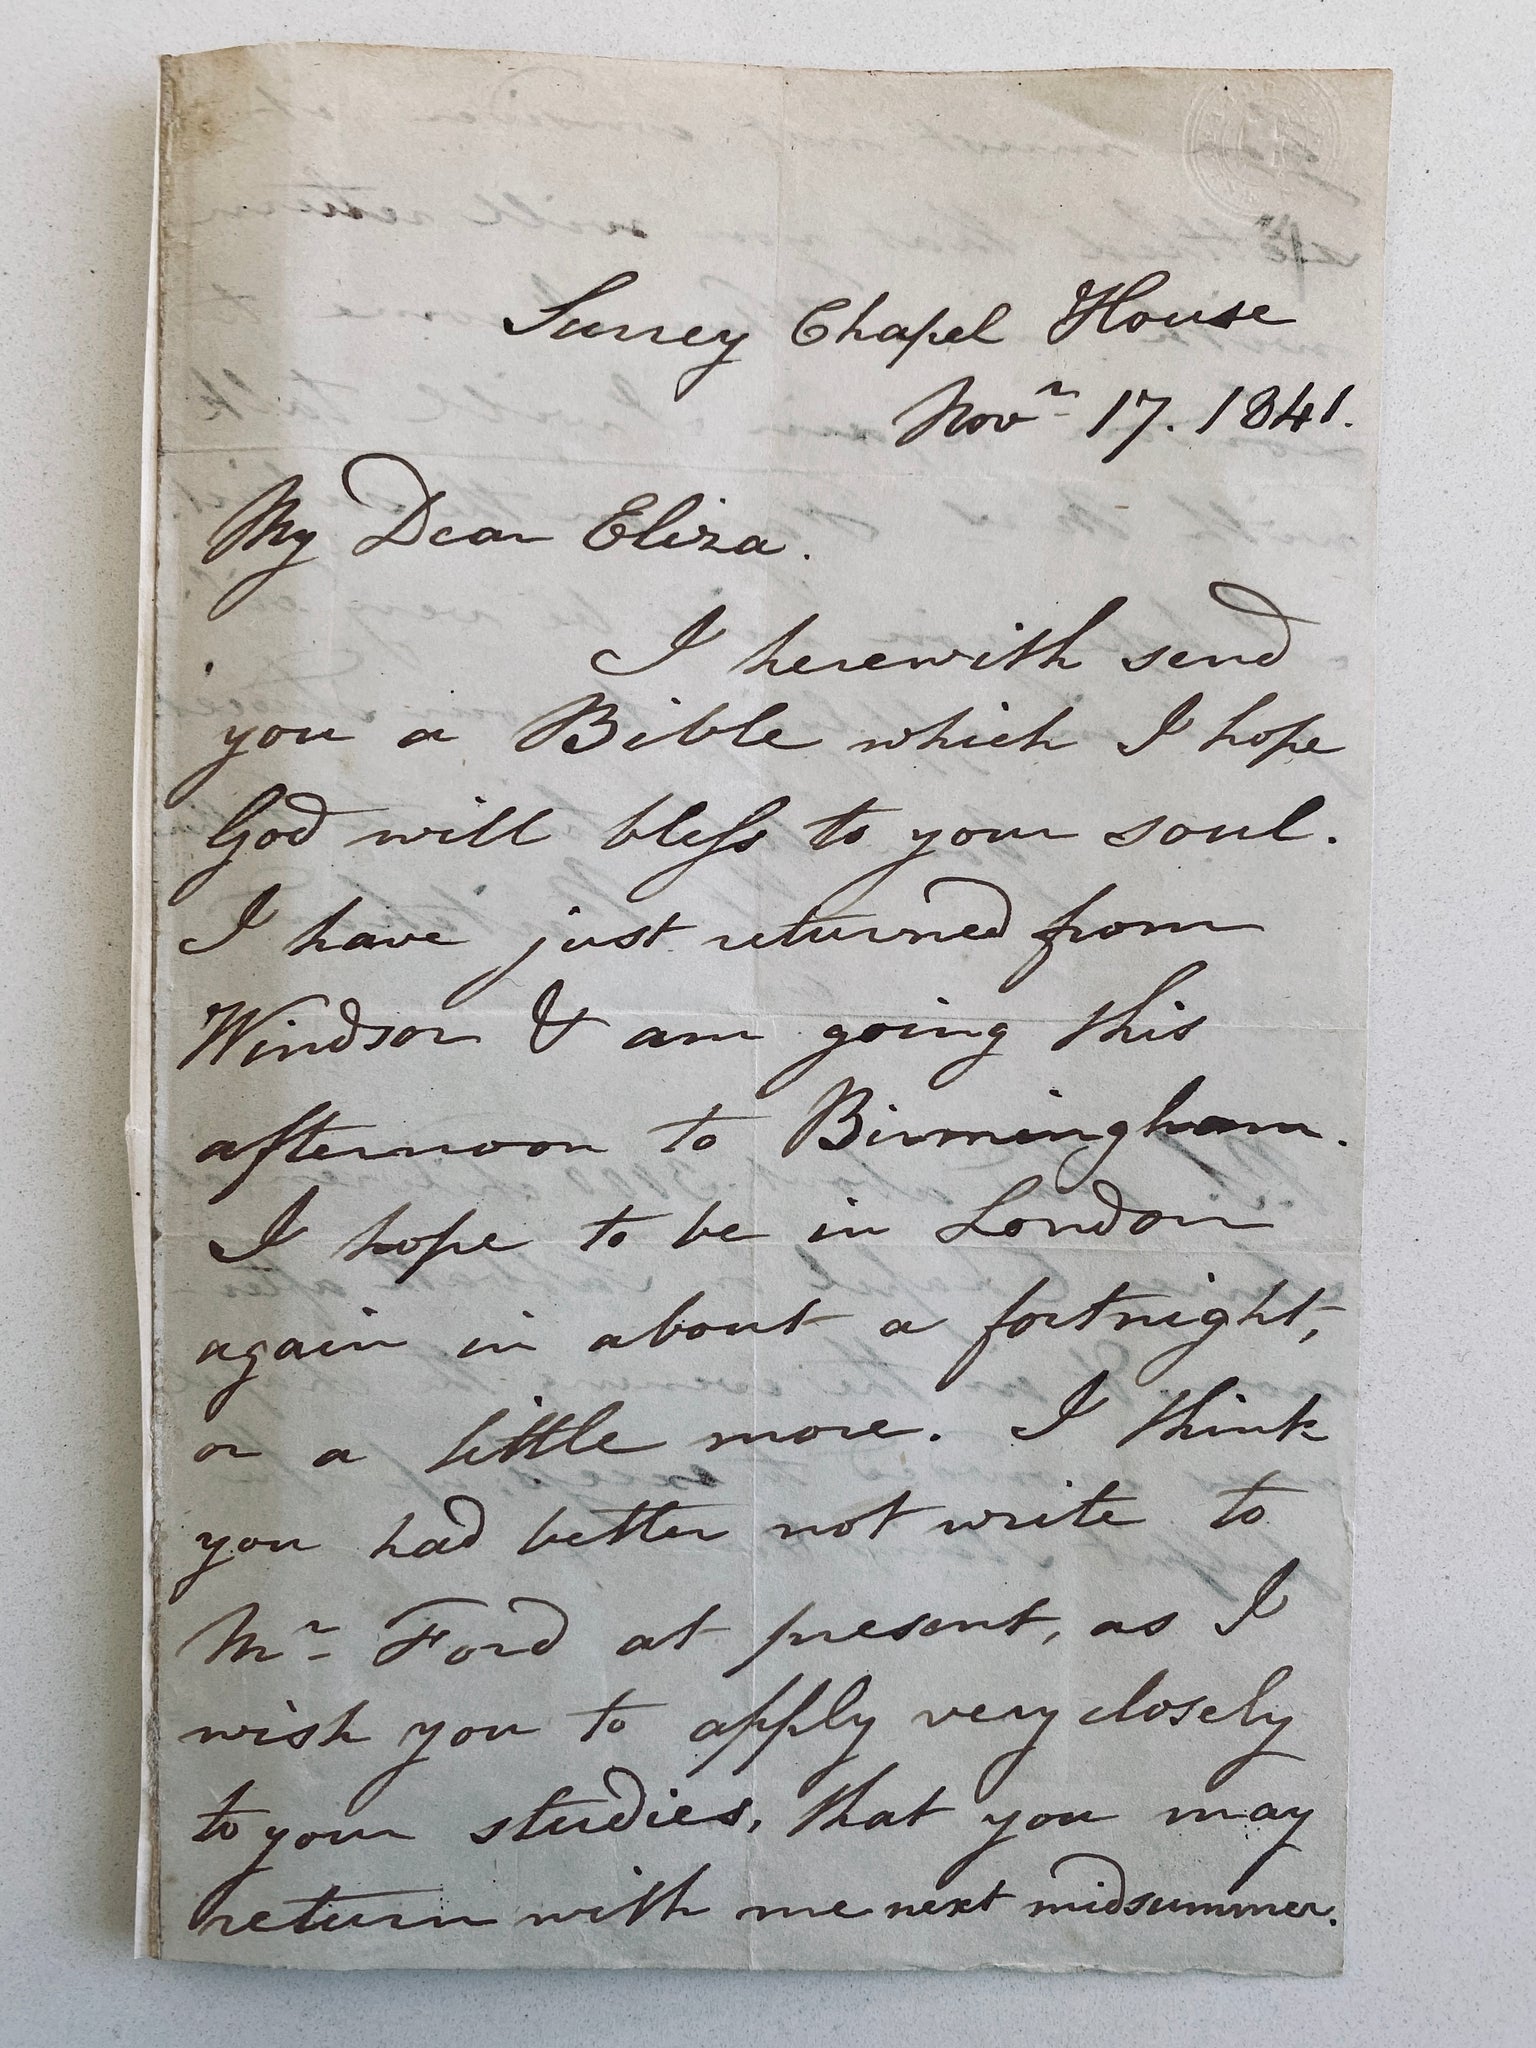 Surrey Chapel House
Novr 17. 1841.
My Dear Eliza.
I herewith send
you a Bible which I hope
God will bless to your soul.
I have just returned from
Windsor & am going this
afternoon to Birmingham.
I hope to be in London
again in about a fortnight,
or a little more. I think
you had better not write to
Mr Ford at present, as I
wish you to apply very closely
to your studies, that you may
return with me next midsummer.